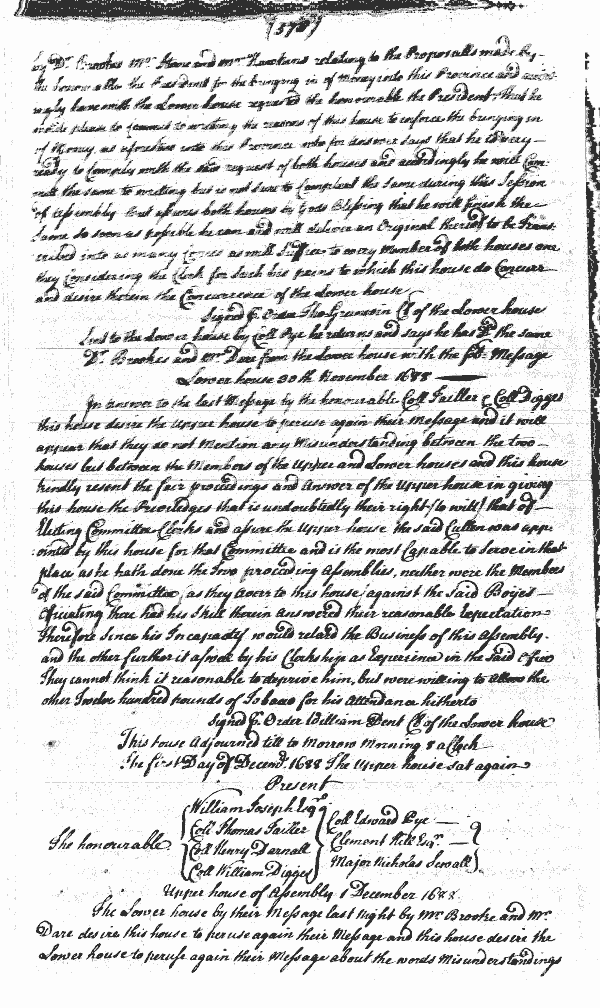 (378)
by Dr. Brookes Mr. Hane and Mr. Hawkins relating to the Proposalls made by
the honourable the President for the bringing in of Money into this Province and accor-
ingly have with the Lower house requested the honourable the President that he
would please to Commit to writing the reasons of this house to enforce the bringing in
of Money as aforesaid into this Province who for answer says that he is very
ready to Comply with the said request of both houses and accordingly he will Com-
mitt the same to writing but is not sure to Compleat the same during this Session
of Assembly But assures both houses by Gods Blessing that he will finish the
same so soon as possible he can and will deliver an Original thereof to be Trans-
cribed into as many Copies as will Suffice to every Member of both houses one
they Considering the Clerk for such his pains to which this house do Concurr
and desire therein the Concurrence of the Lower house
Signed P. Order Tho: Grunwin Cl of the Lower house
Sent to the Lower house by Coll Pye he returns and says he has Dd the same
Dr. Brookes and Mr. Dare from the Lower house with the foll. Message
Lower house 30th November 1688
In answer to the last Message by the honourable Coll Tailler & Coll Digges
this house desire the Upper house to peruse again their Message and it will
appear that they do not Mention any Misunderstanding between the two
houses but between the Members of the Upper and Lower houses and this house
kindly resent the fair proceedings and Answer of the Upper house in giving
this house the Priviledges that is undoubtedly their right (to witt) that of
Electing Committee Clerks and assure the Upper house the said Cullen was app-
ointed by this house for that Committee and is the most Capable to Serve in that
place as he hath done the Two preceeding Assemblies, neither were the Members
of the said Committee (as they averr to this house) against the said Boyes
officiating there had his Skill therein Answered their reasonable Expectation
Therefore since his Incapacity would retard the Business of this Assembly
and the other further it as well by his Clerkship as Experience in the said Office
They cannot think it reasonable to deprive him, but were willing to allow the
other Twelve hundred pounds of Tobacco for his Attendance hitherto
Signed P. Order William Dent Cl of the Lower house
This house Adjourned till to Morrow Morning 8 a Clock
The first Day of Decemr. 1688 The Upper house sat again
Present
The honourable
William Joseph Esqr.
Coll Thomas Tailler
Coll Henry Darnall
Coll William Digges
Coll Edward Pye
Clement Hill Esqr.
Major Nicholas Sewall
Upper house of Assembly 1 December 1688
The Lower house by their Message last Night by Mr. Brooke and Mr.
Dare desire this house to peruse again their Message and this house desire the
Lower house to peruse again their Message about the words Misunderstandings